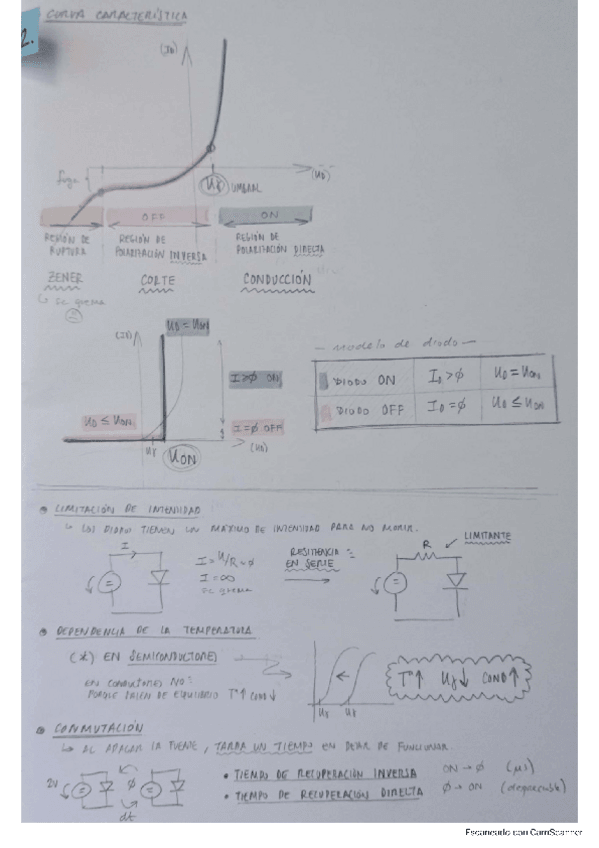 2.
CURVA CARACTERÍSTICA
(ID)
fuga
(UD)
Uγ UMBRAL
OFF
ON
REGIÓN DE RUPTURA
REGIÓN DE POLARIZACIÓN INVERSA
REGIÓN DE POLARIZACIÓN DIRECTA
ZENER
CORTE
CONDUCCIÓN
↳ se quema
(ID)
UD = UON
I>φ ON
UD ≤ UON
I=φ OFF
Uγ
UON
(UD)
— modelo de diodo —
DIODO ON ID>φ UD = UON
DIODO OFF ID=φ UD ≤ UON
LIMITACIÓN DE INTENSIDAD
↳ LOS DIODO TIENEN UN MÁXIMO DE INTENSIDAD PARA NO MORIR.
I
I = U/R=φ
I = ∞
SE QUEMA
RESITENCIA EN SERIE
R
LIMITANTE
DEPENDENCIA DE LA TEMPERATURA
(*) EN SEMICONDUCTORES
EN CONDUCTORES NO:
PORQUE SALEN DE EQUILIBRIO Tª↑ COND↓
Uγ Uγ
Tª↑ Uγ↓ COND↑
CONMUTACIÓN
↳ AL APAGAR LA FUENTE, TARDA UN TIEMPO EN DEJAR DE FUNCIONAR.
2V
φ
dt
• TIEMPO DE RECUPERACIÓN INVERSA ON → φ (μs)
• TIEMPO DE RECUPERACIÓN DIRECTA φ → ON (despreciable)
Escaneado con CamScanner